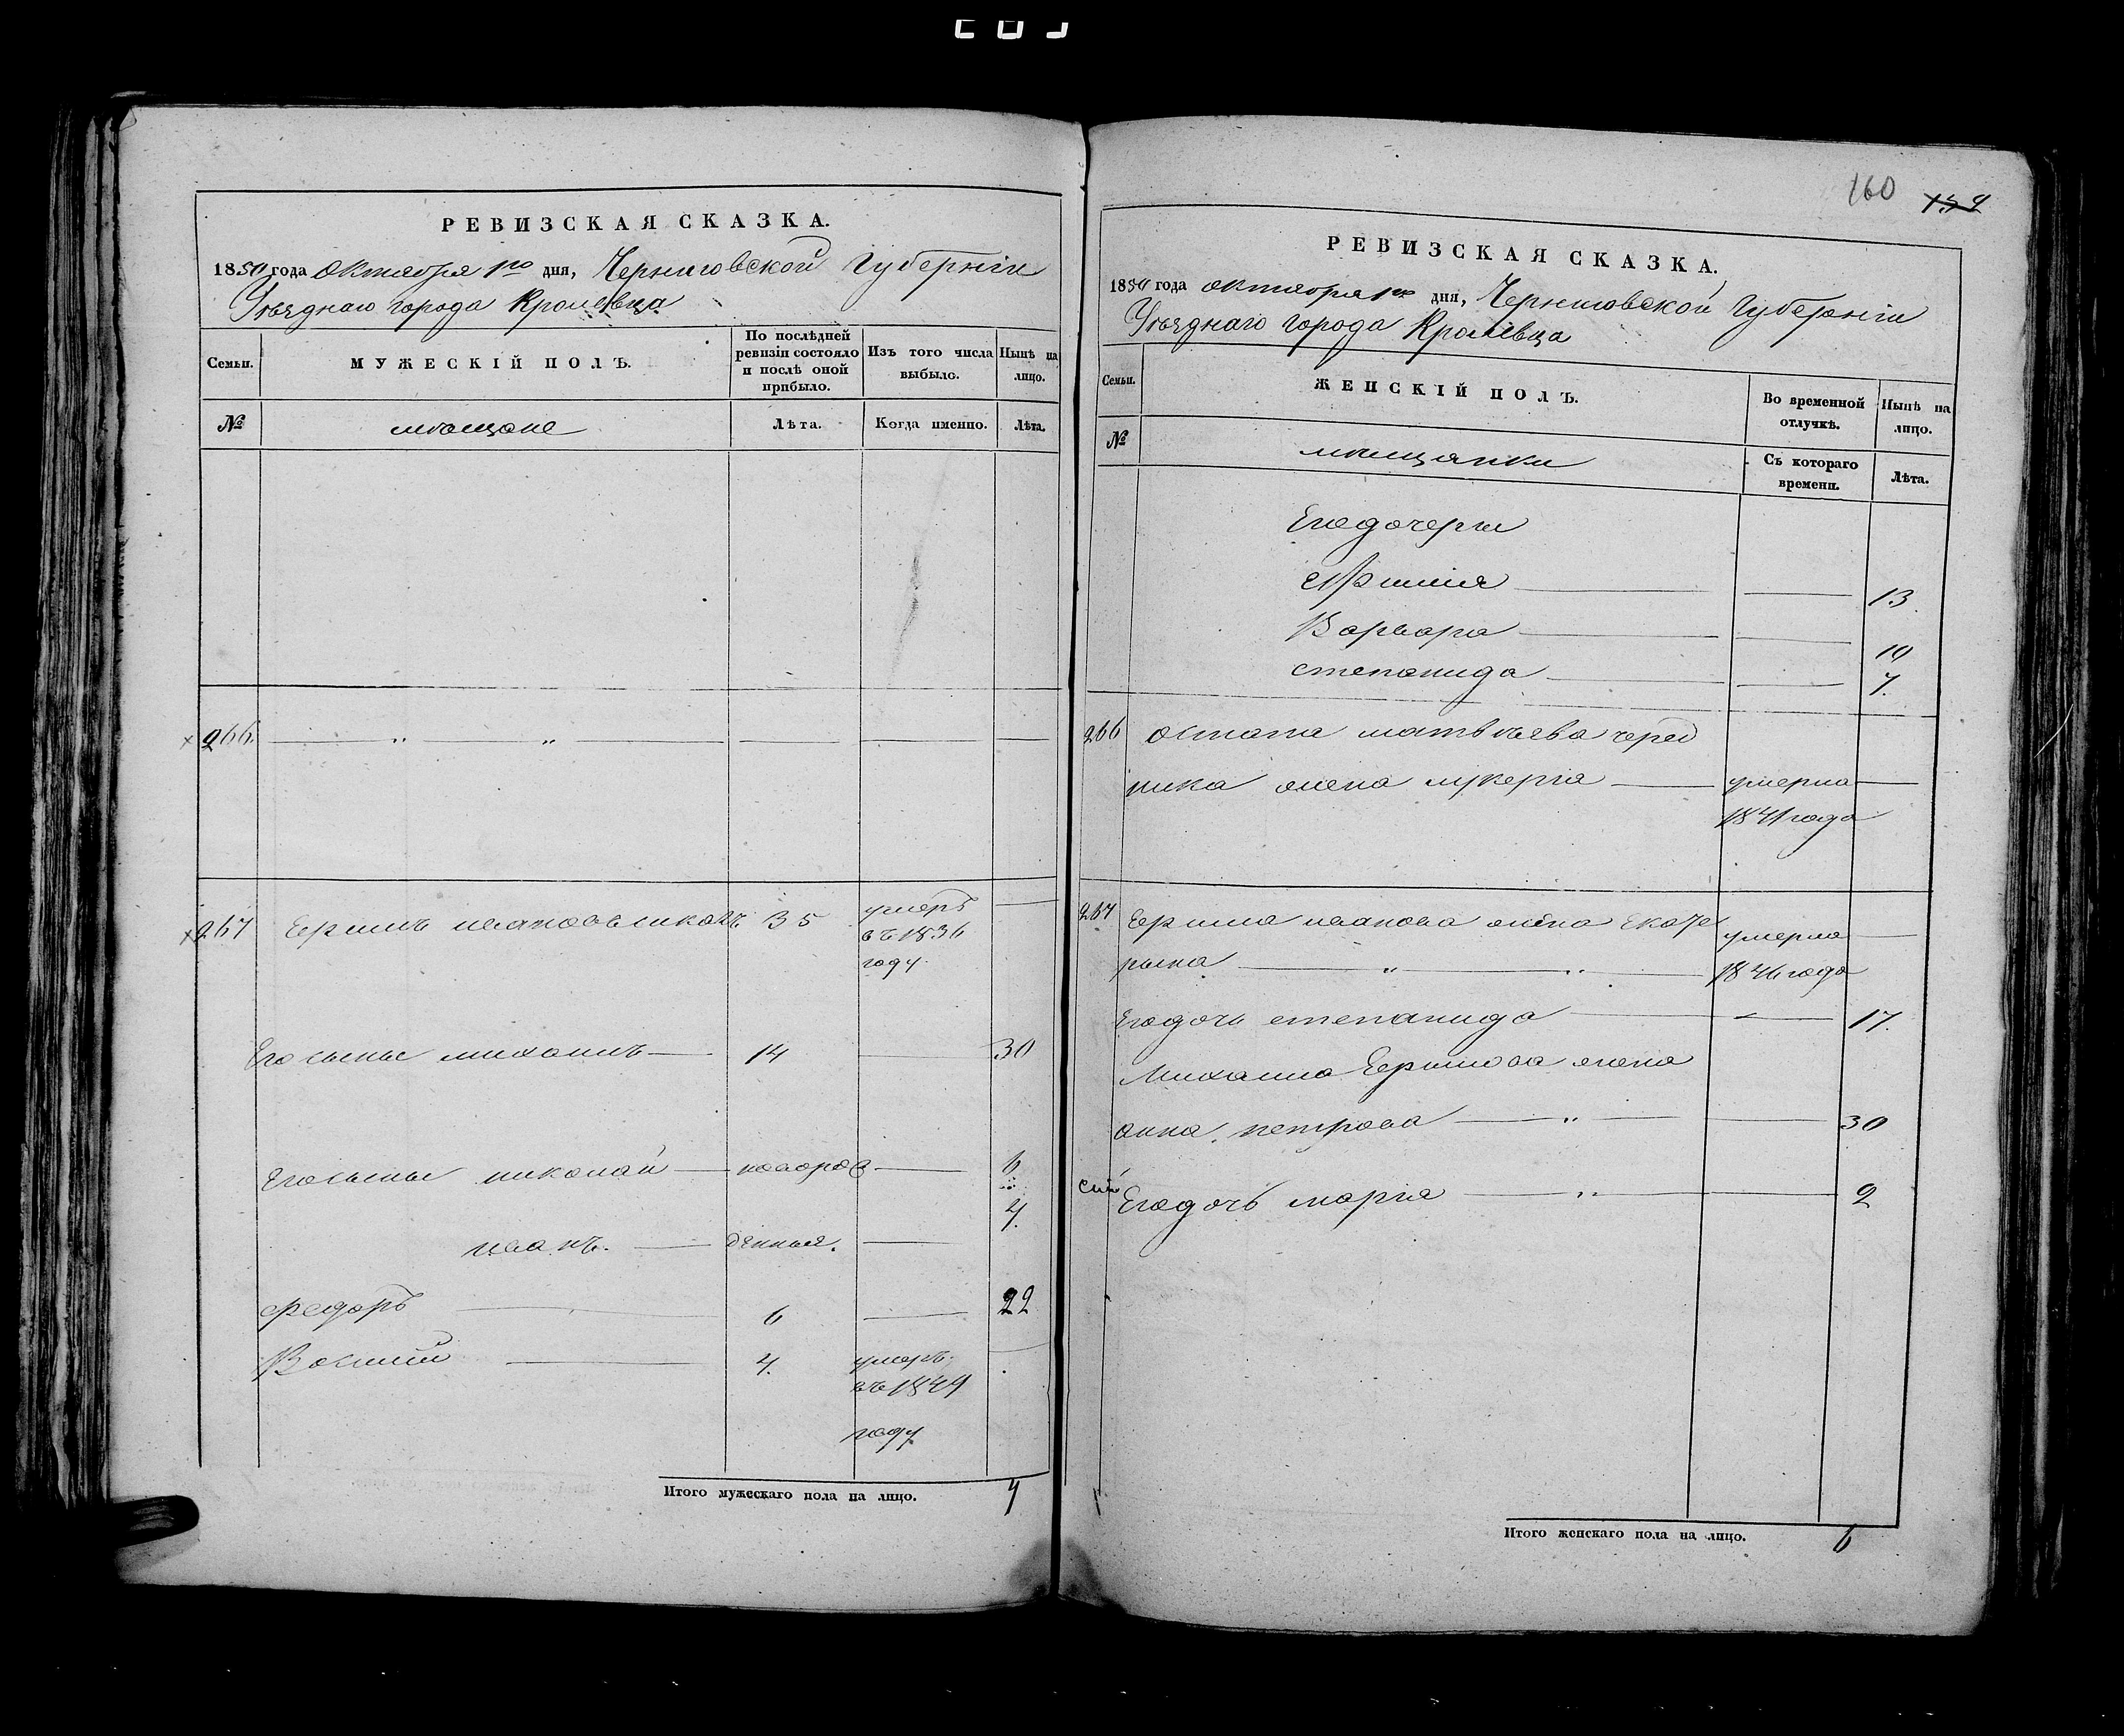 РЕВИЗСКАЯ СКАЗКА.
1850 года октября 1го дня, Черниговской Губернiи
Уѣзднаго города Кролевца
Семьи. МУЖЕСКIЙ ПОЛЪ. По послѣдней ревизiи состояло и послѣ оной прибыло. Изъ того числа выбыло. Нынѣ на лицо.
№ мѣщане Лѣта. Когда именно. Лѣта.
266.
267 Ефимъ 35 умеръ въ 1836 году.
Его сынъ михаилъ 14 30
Его сыны николай новорож 6
4.
иванъ. денныя.
федоръ 6 22
Василий 4. умеръ въ 1849 году
Итого мужескаго пола на лицо. 4
160 159
РЕВИЗСКАЯ СКАЗКА.
1850 года октября 1го дня, Черниговской Губернiи
Уѣзднаго города Кролевца
Семьи. ЖЕНСКIЙ ПОЛЪ. Во временной отлучкѣ. Нынѣ на лицо.
№ мѣщанки Съ котораго времени. Лѣта.
Его дочери
13.
Варвара 10
степанида 7.
266 матвѣева
жена лукерiя умерла
1841 года
267 Ефима иванова жена Екате умерла
рына 1846 года
Его дочь степанида 17.
Михаила Ефимова жена
анна петрова 30
Его дочь марiя 2
Итого женскаго пола на лицо. 6